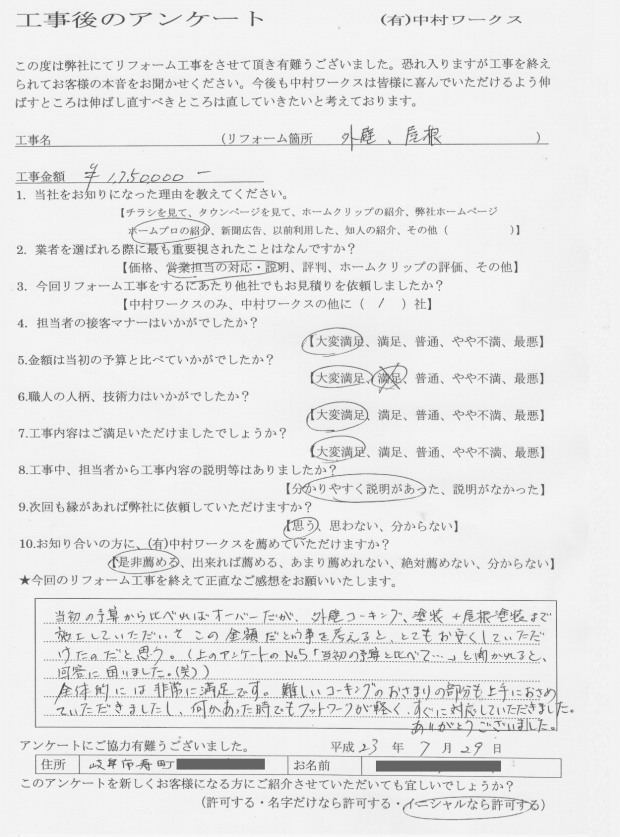 工事後のアンケート (有)中村ワークス
この度は弊社にてリフォーム工事をさせて頂き有難うございました。恐れ入りますが工事を終え
られてお客様の本音をお聞かせください。今後も中村ワークスは皆様に喜んでいただけるよう伸
ばすところは伸ばし直すべきところは直していきたいと考えております。
工事名 (リフォーム箇所 外壁、屋根 )
工事金額 ¥1,750000-
1. 当社をお知りになった理由を教えてください。
【チラシを見て、タウンページを見て、ホームクリップの紹介、弊社ホームページ
ホームプロの紹介、新聞広告、以前利用した、知人の紹介、その他 ( )】
2. 業者を選ばれる際に最も重要視されたことはなんですか?
【価格、営業担当の対応・説明、評判、ホームクリップの評価、その他】
3. 今回リフォーム工事をするにあたり他社でもお見積りを依頼しましたか?
【中村ワークスのみ、中村ワークスの他に ( / ) 社】
4. 担当者の接客マナーはいかがでしたか?
【大変満足、満足、普通、やや不満、最悪】
5.金額は当初の予算と比べていかがでしたか?
【大変満足、満足、普通、やや不満、最悪】
6.職人の人柄、技術力はいかがでしたか?
【大変満足、満足、普通、やや不満、最悪】
7.工事内容はご満足いただけましたでしょうか?
【大変満足、満足、普通、やや不満、最悪】
8.工事中、担当者から工事内容の説明等はありましたか?
【分かりやすく説明があった、説明がなかった】
9.次回も縁があれば弊社に依頼していただけますか?
【思う、思わない、分からない】
10.お知り合いの方に、(有)中村ワークスを薦めていただけますか?
【是非薦める、出来れば薦める、あまり薦めれない、絶対薦めない、分からない】
★今回のリフォーム工事を終えて正直なご感想をお願いいたします。
当初の予算から比べればオーバーだが、外壁コーキング、塗装+屋根塗装まで
施工していただいて この金額だという事を考えると、とてもお安くしていただ
けたのだと思う。(上のアンケートのNo5「当初の予算と比べて…」と聞かれると、
回答に困りました。(笑))
全体的には非常に満足です。難しいコーキングのおさまりの部分も上手におさめ
ていただきましたし、何かあった時でもフットワークが軽く、すぐに対応していただきました。
ありがとうございました。
アンケートにご協力有難うございました。 平成 23 年 7 月 29 日
住所 岐阜市寿町 お名前
このアンケートを新しくお客様になる方にご紹介させていただいても宜しいでしょうか?
(許可する・名字だけなら許可する・イニシャルなら許可する)